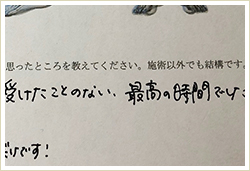 思ったところを教えてください。施術以外でも結構です。
受けたことのない、最高の時間でした
です!